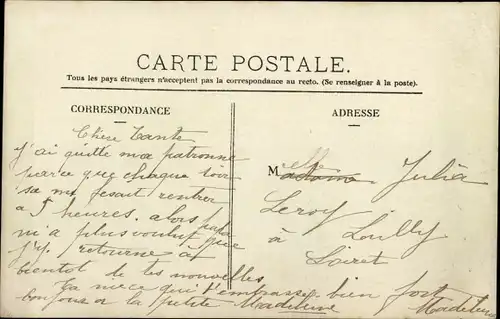 CARTE POSTALE.
Tous les pays étrangers n'acceptent pas la correspondance au recto. (Se renseigner à la poste).
CORRESPONDANCE
Chère Tante
j'ai quitté ma patronne
parce que chaque soir
sa me fesait rentrer
a 5 heures. alors papa
m'a plus voulu que
j'y retourne à
bientot de tes nouvelles
Ta niece qui t'embrasse bien fort
bonjour a la petite Madeleine Madeleine
ADRESSE
Melle Julia
Leroy Louilly
à Loiret